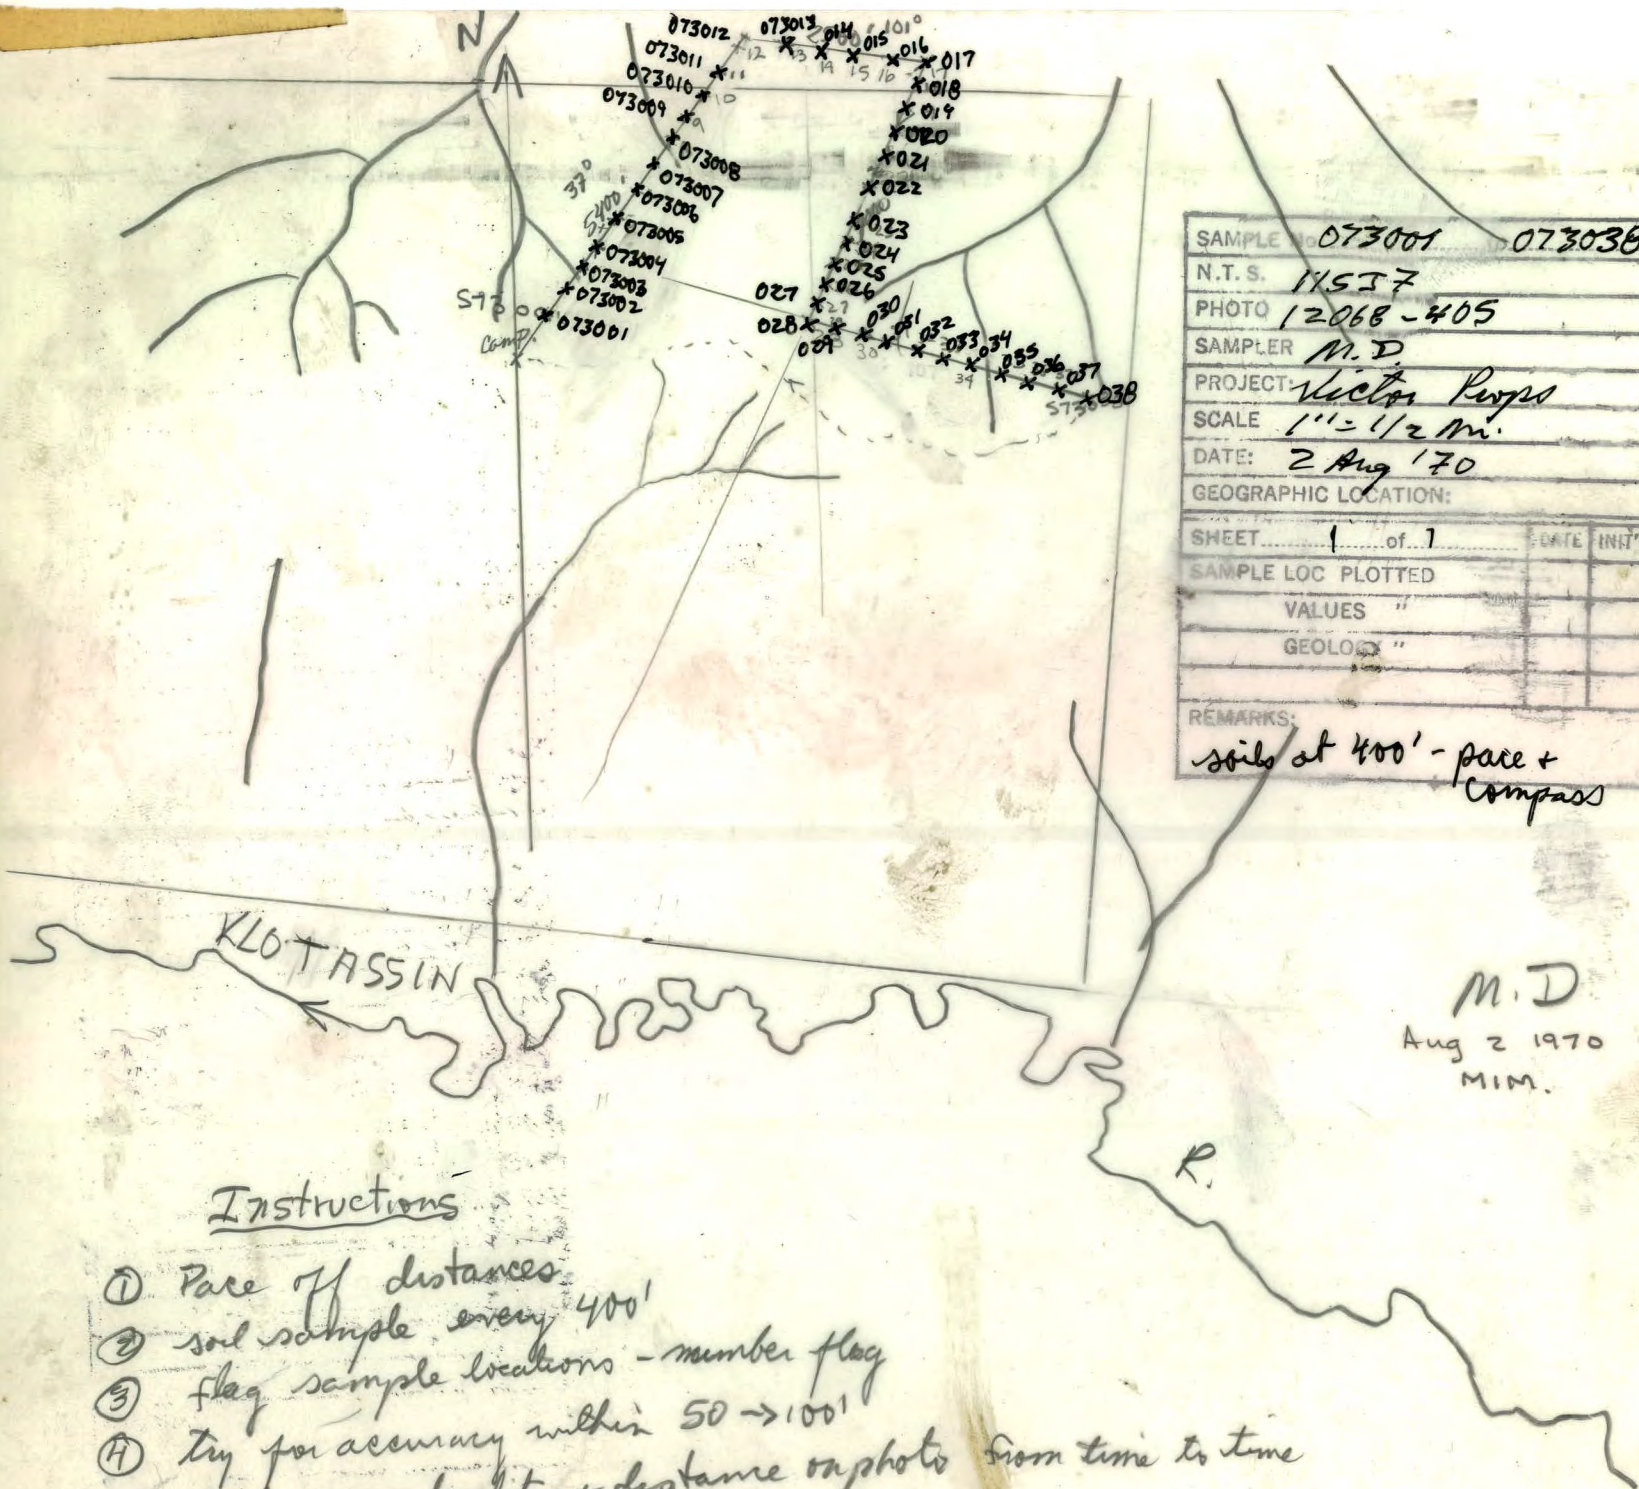 N
073012
073013
014
015
016
017
101°
12
13
14
15
16
073011
11
018
073010
10
019
073009
9
020
073008
021
37°
073007
022
5400'
073006
023
073005
024
073004
025
073003
026
073002
027
27
S73
073001
028
Camp.
029
030
30
031
032
033
034
34
035
036
037
038
SAMPLE No 073001 073038
N.T.S. 115J7
PHOTO 12068-405
SAMPLER M.D.
PROJECT: Victor Props
SCALE 1"=1/2 Mi.
DATE: 2 Aug '70
GEOGRAPHIC LOCATION:
SHEET 1 of 1 DATE INIT'
SAMPLE LOC PLOTTED
VALUES "
GEOLOGY "
REMARKS:
soils at 400' - pace +
compass
KLOTASSIN
R.
M.D
Aug 2 1970
MIM.
Instructions
① Pace off distances
② soil sample every 400'
③ flag sample locations - number flag
④ try for accuracy within 50 → 100'
distance on photo from time to time